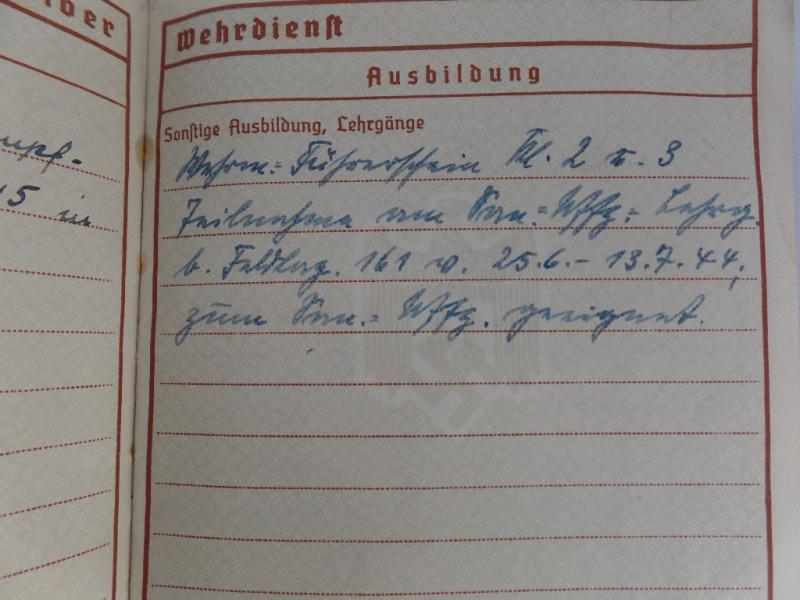 Wehrdienst
Ausbildung
Sonstige Ausbildung, Lehrgänge
Wehrm.=Führerschein Kl. 2 u. 3
Teilnahme am San.=Uffz.= Lehrg.
b. Feldlaz. 161 v. 25.6.- 13.7.44;
zum San.= Uffz. geeignet.